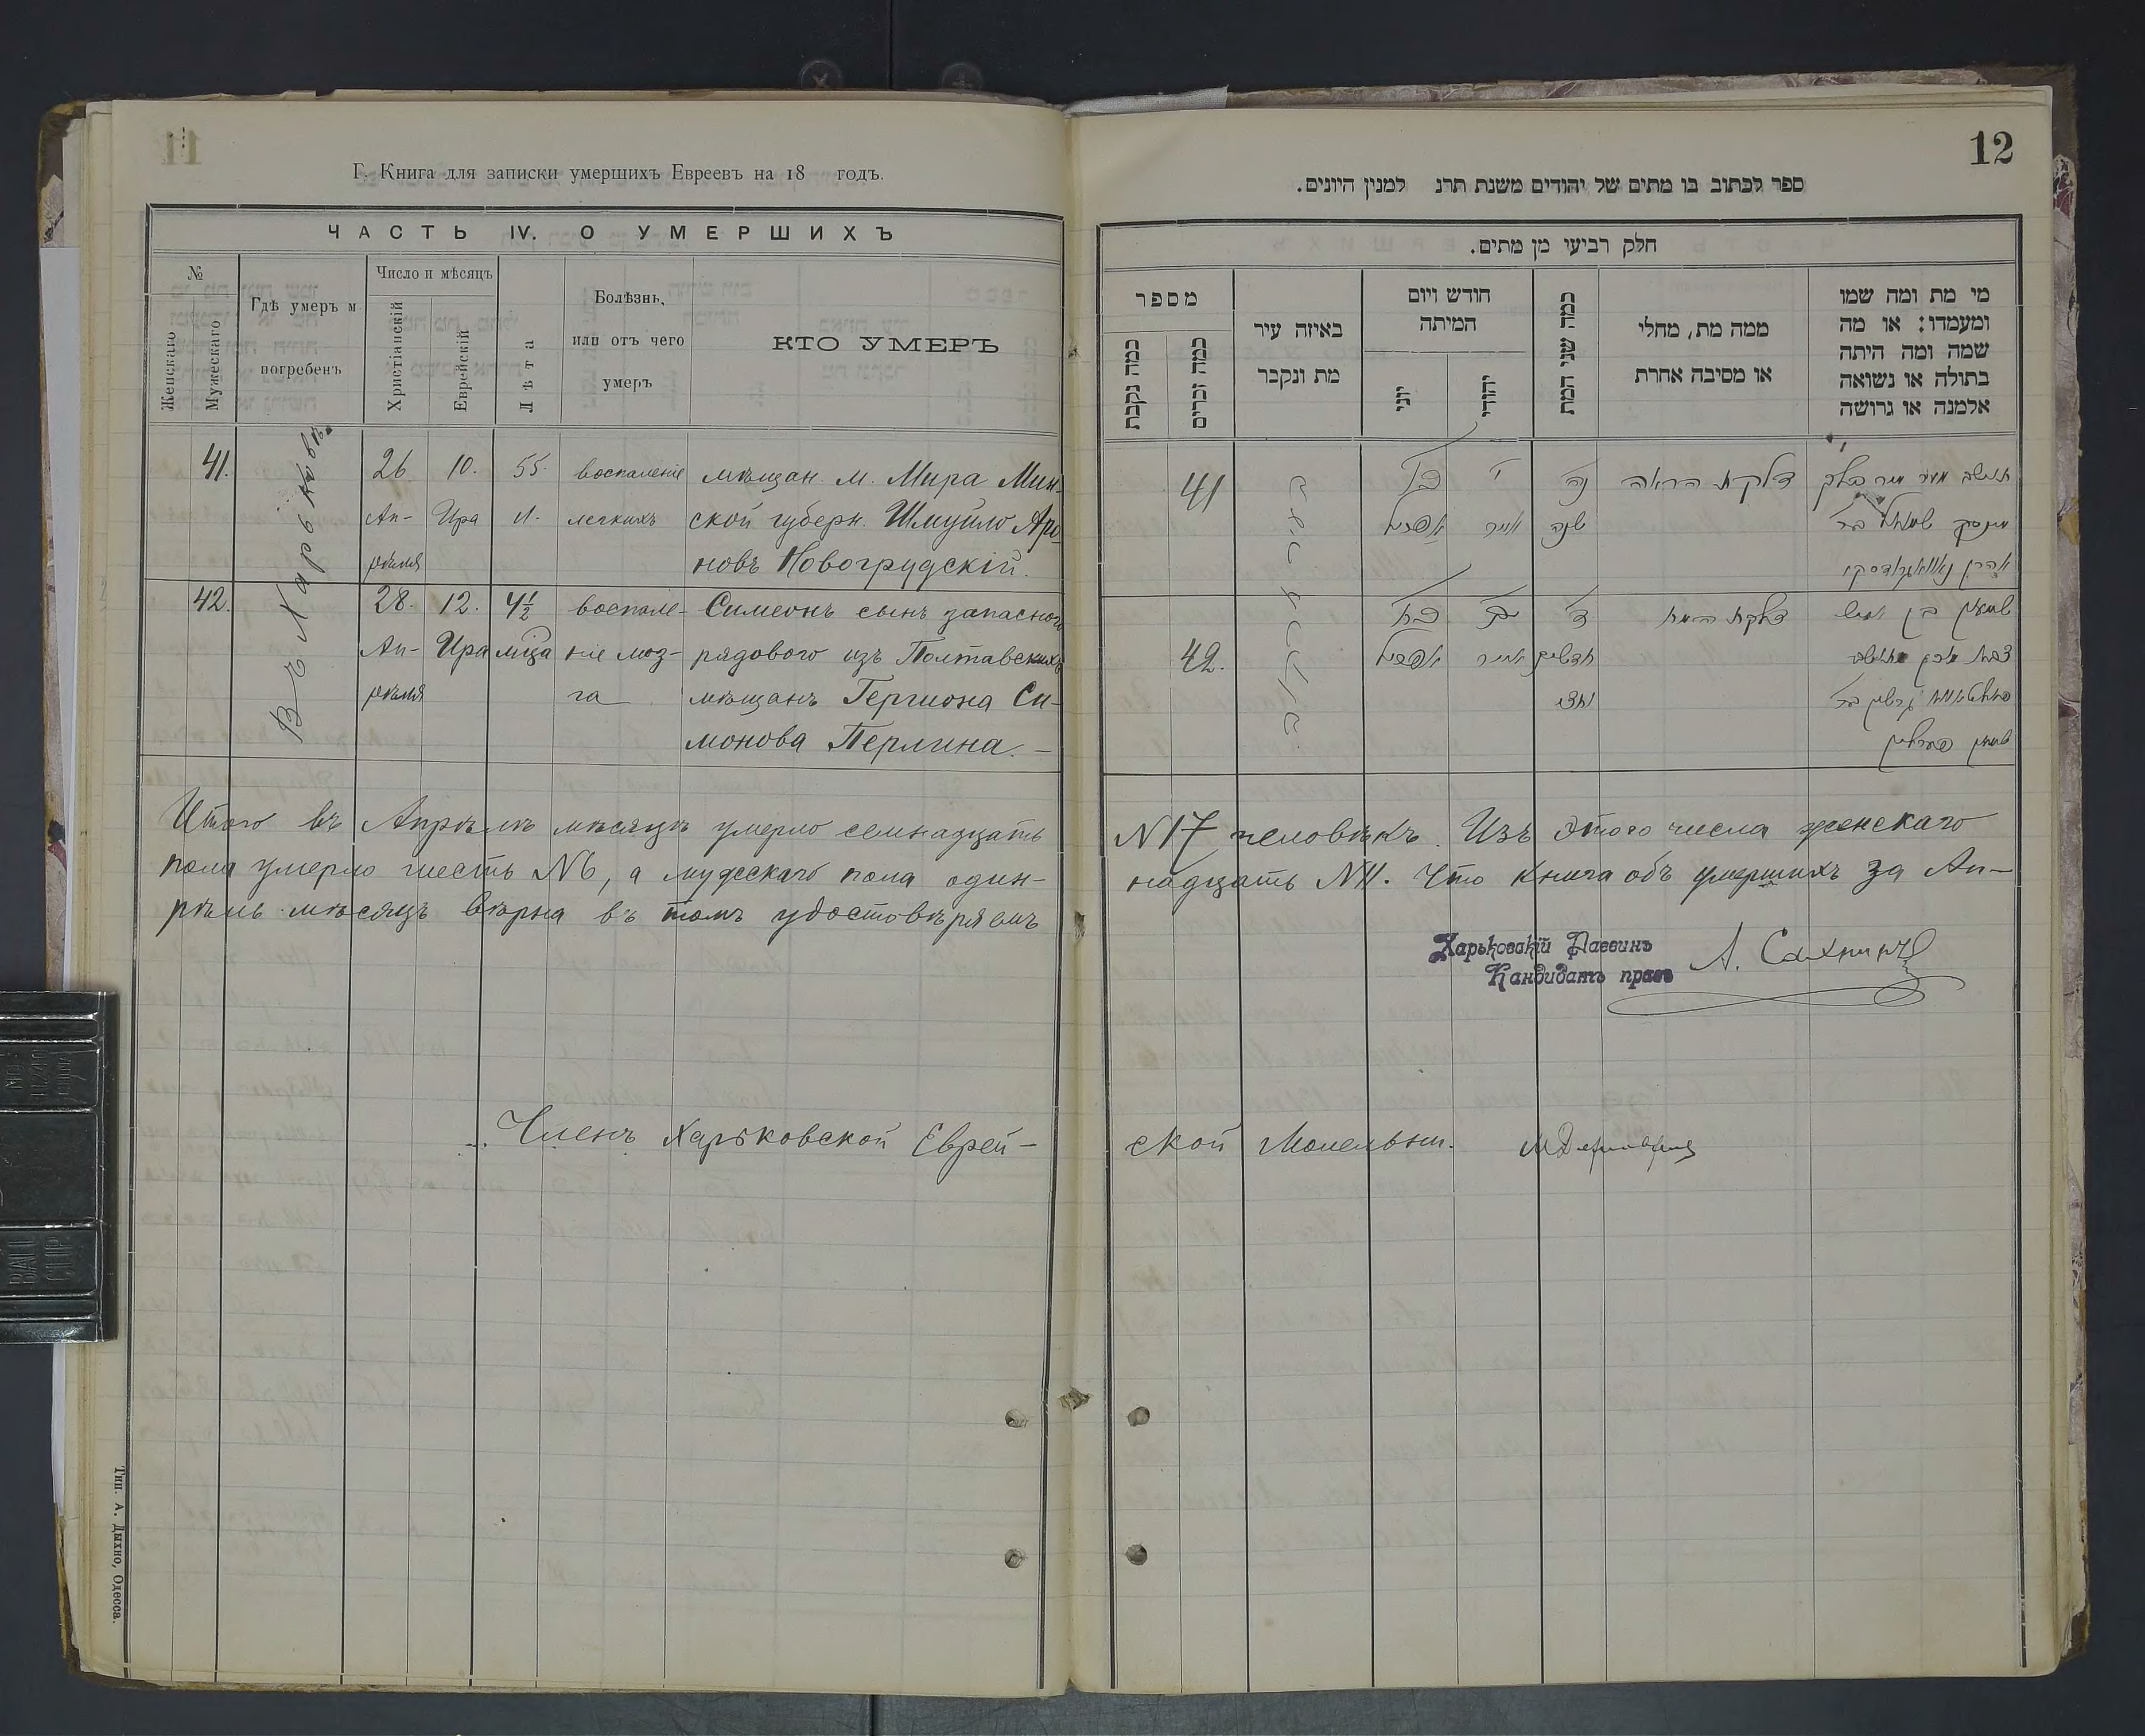 11
Г. Книга для записки умершихъ Евреевъ на 18 годъ.
ЧАСТЬ IV. О УМЕРШИХЪ
№
Женскаго
Мужескаго
Гдѣ умеръ и
погребенъ
Число и мѣсяцъ
Христіанскій
Еврейскій
Лѣта
Болѣзнь,
или отъ чего
умеръ
КТО УМЕРЪ
Въ Харьковѣ
41. 26 10. 55 воспаленіе мѣщан. м. Мира Мин-
Ап- Ира л. легкихъ ской губерн. Шмуйло Аро-
рѣля новъ Новогрудскій.
42. 28. 12. 4½ воспале- Симеонъ сынъ запаснаго
Ап- Ира мца ніе моз- рядового изъ Полтавскихъ
рѣля га мѣщанъ Гершона Си-
монова Перлина.
Итого въ Апрѣлѣ мѣсяцѣ умерло семнадцать
пола умерло шесть N6, а мужескаго пола один-
рѣль мѣсяцъ вѣрна въ томъ удостовѣряемъ
Членъ Харьковской Еврей-
Тип. А. Дыхно, Одесса.
12
ספר לכתוב בו מתים של יהודים משנת תרנ למנין היונים.
חלק רביעי מן מתים.
מספר
כמה נקבת
כמה זכרים
באיזה עיר
מת ונקבר
חודש ויום
המיתה
יוני
יהודי
כמה שני המת
ממה מת, מחלי
או מסיבה אחרת
מי מת ומה שמו
ומעמדו: או מה
שמה ומה היתה
בתולה או נשואה
אלמנה או גרושה
41 כו י נה דלקת הראה
אפריל אייר שנה מינסק שמואל בר
אהרן נאוואגרודסקי
42. כח יב ד דלקת המח שמעון בן
אפריל אייר חדשים
וחצי
שמעון פערלין
N17 человѣкъ. Изъ этого числа женскаго
надцать N11. Что книга объ умершихъ за Ап-
Харьковскій Раввинъ
Кандидатъ правъ
ской Молельни.